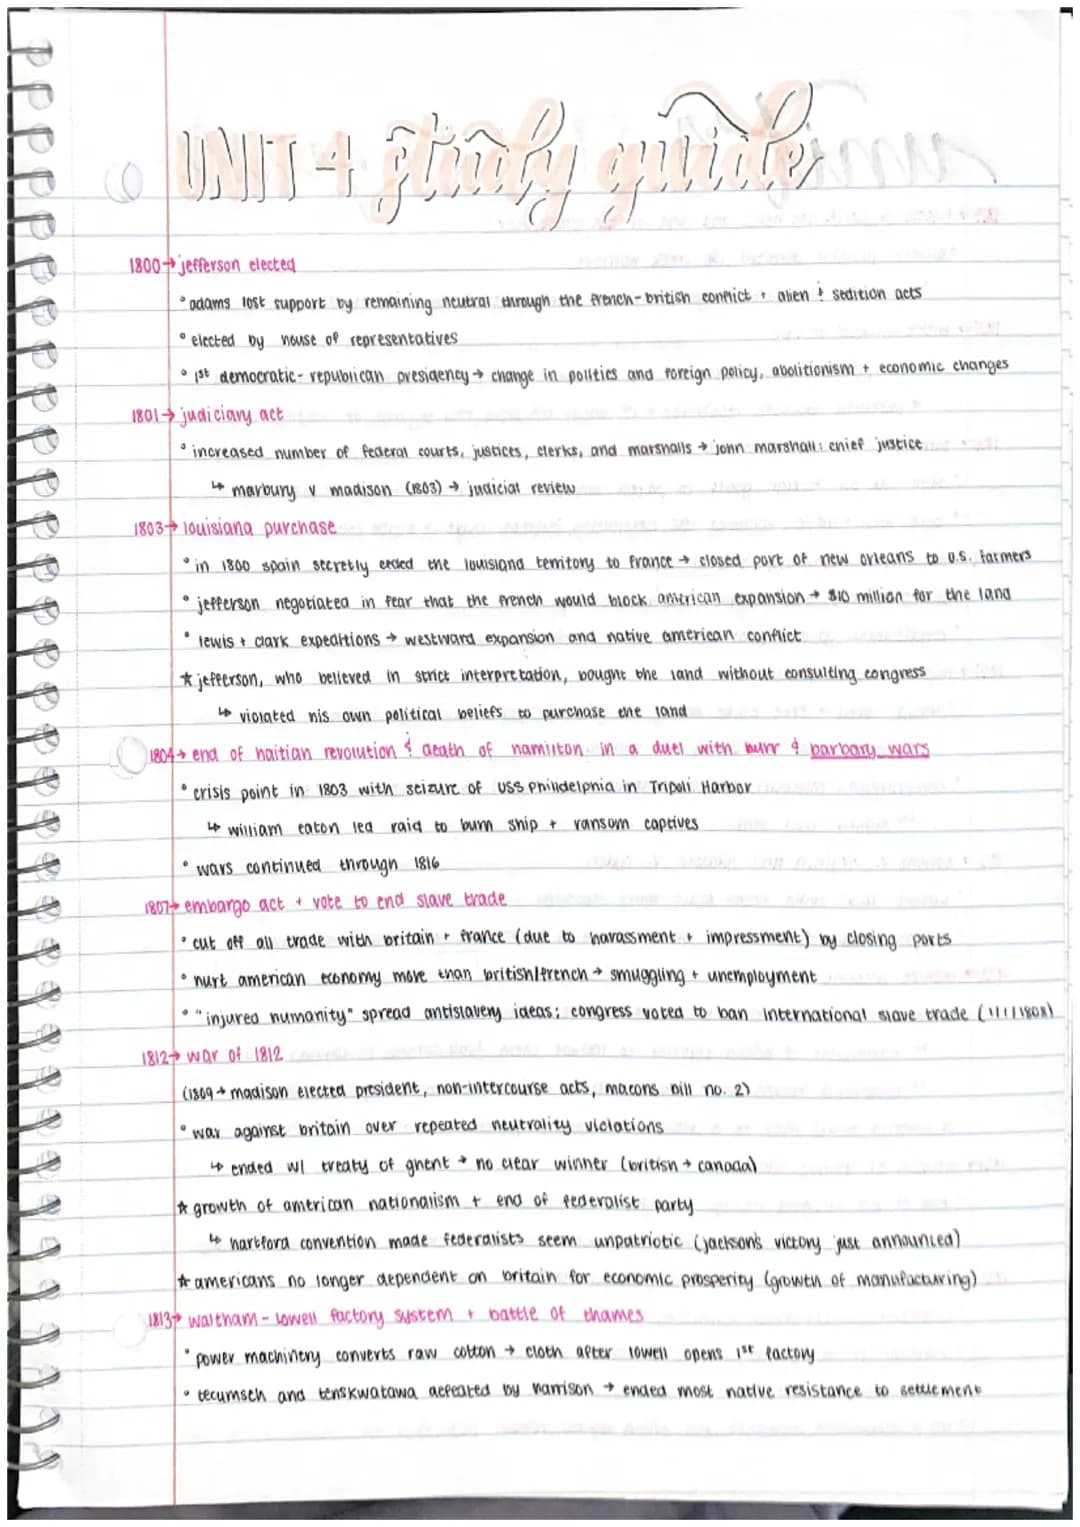 UNIT 4 study guide
1800→ jefferson elected
° adams lost support by remaining neutral through the french-british conflict + alien & sedition acts
° elected by house of representatives
° 1st democratic-republican presidency → change in politics and foreign policy, abolitionism + economic changes
1801→ judiciary act
° increased number of federal courts, justices, clerks, and marshalls → john marshall: chief justice
↳ marbury v madison (1803) → judicial review
1803→ louisiana purchase
° in 1800 spain secretly ceded the louisiana territory to france → closed port of new orleans to u.s. farmers
° jefferson negotiated in fear that the french would block american expansion → $10 million for the land
° lewis + clark expeditions → westward expansion and native american conflict
★ jefferson, who believed in strict interpretation, bought the land without consulting congress
↳ violated his own political beliefs to purchase the land
1804→ end of haitian revolution & death of hamilton in a duel with burr & barbary wars
° crisis point in 1803 with seizure of USS Philidelphia in Tripoli Harbor
↳ william eaton led raid to burn ship + ransom captives
° wars continued through 1816
1807→ embargo act + vote to end slave trade
° cut off all trade with britain + france (due to harassment + impressment) by closing ports
° hurt american economy more than british/french → smuggling + unemployment
° "injured humanity" spread antislavery ideas; congress voted to ban international slave trade (1/1/1808)
1812→ war of 1812
(1809 → madison elected president, non-intercourse acts, macons bill no. 2)
° war against britain over repeated neutrality violations
↳ ended w/ treaty of ghent → no clear winner (british → canada)
★ growth of american nationalism + end of federalist party
↳ hartford convention made federalists seem unpatriotic (jackson's victory just announced)
★ americans no longer dependent on britain for economic prosperity (growth of manufacturing)
1813→ waltham-lowell factory system + battle of thames
° power machinery converts raw cotton → cloth after lowell opens 1st factory
° tecumseh and tenskwatawa defeated by harrison → ended most native resistance to settlement